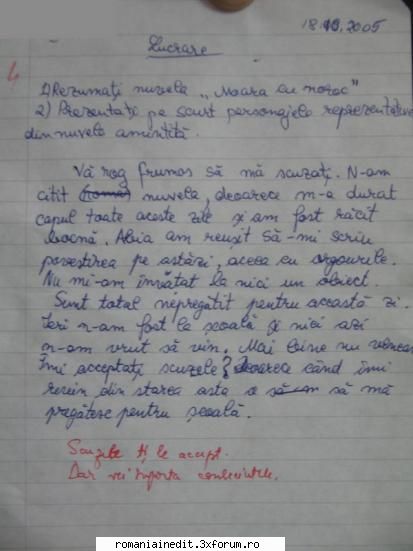 18.10.2005
Lucrare
4
1) Rezumați nuvela „Moara cu noroc"
2) Prezentați pe scurt personajele reprezentative
din nuvela amintită.
Vă rog frumos să mă scuzați. N-am
citit nuvela, deoarece m-a durat
capul toate aceste zile și am fost răcit
bocnă. Abia am reușit să-mi scriu
povestirea pe astăzi, aceea cu
Nu mi-am învățat la nici un obiect.
Sunt total nepregătit pentru această zi.
Ieri n-am fost la școală și nici azi
n-am vrut să vin. Mai bine nu veneam
Îmi acceptați scuzele? deoarece când îmi
revin din starea asta o să mă
pregătesc pentru școală.
Scuzele ți le accept.
Dar vei suporta consecințele.
romaniainedit.3xforum.ro